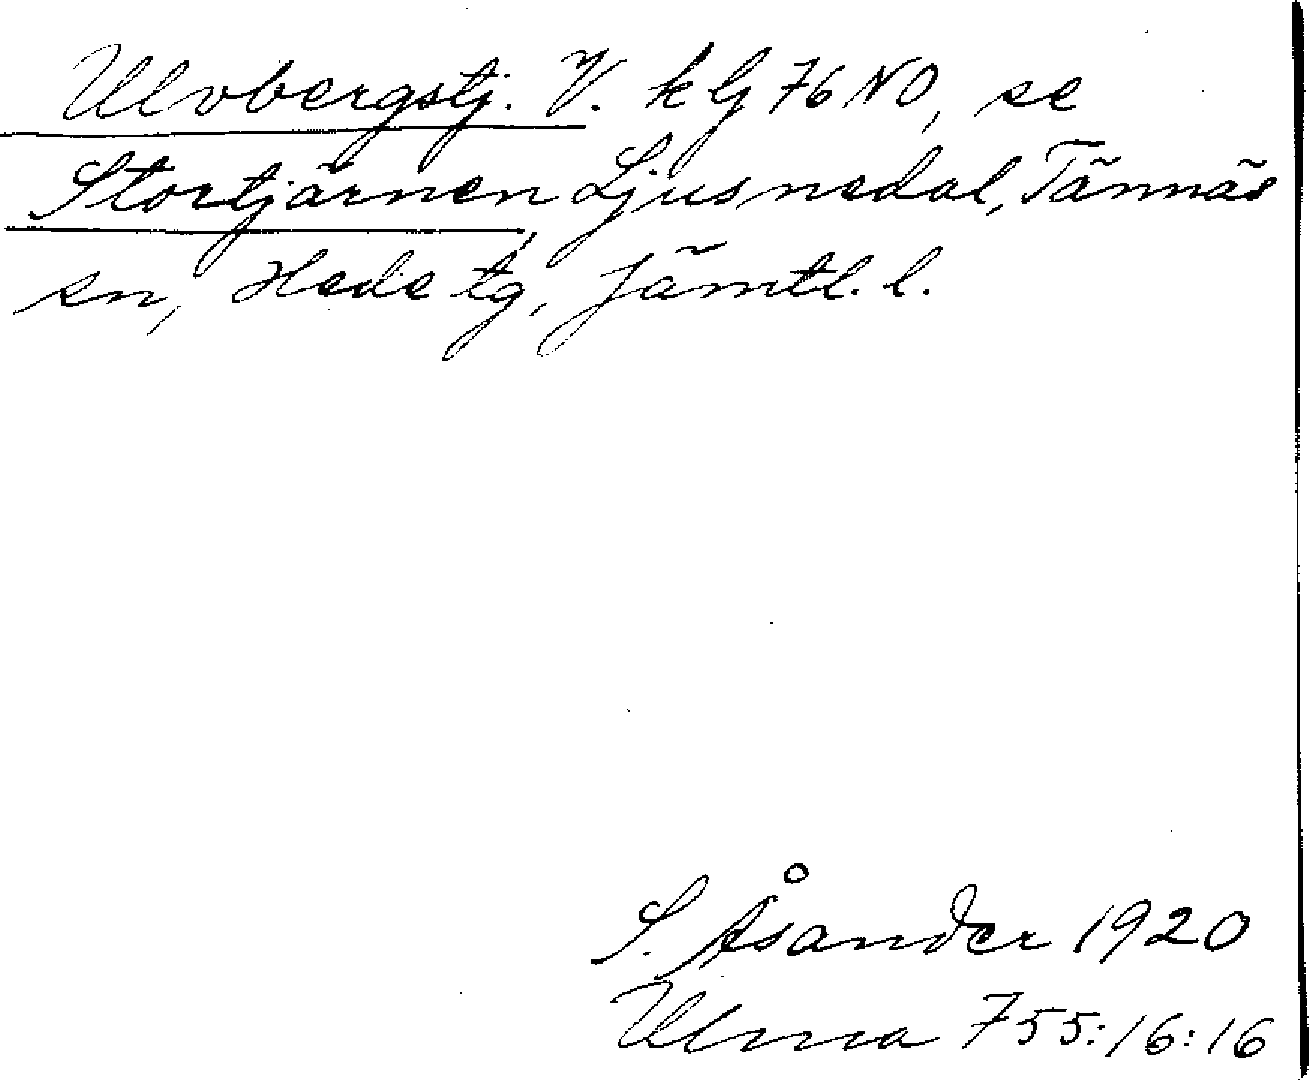 Ulvbergstj. V. k bj 76 NO, se
Stortjärnen, Ljusnedal, Tännäs
sn, Hede tg, Jämtl. l.
S. Åsander 1920
Ulma 755:16:16